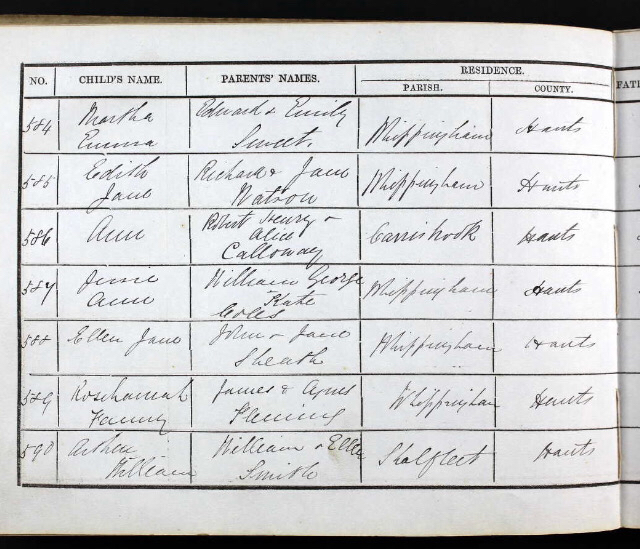 NO. CHILD'S NAME. PARENTS' NAMES. RESIDENCE.
PARISH. COUNTY. FATH
584 Martha Emma Edward & Emily Sweet. Whippingham Hants
585 Edith Jane Richard & Jane Watson Whippingham Hants
586 Ann Robert Henry & Alice Calloway Carrisbrook Hants
587 Jessie Ann William George Kate Coles Whippingham Hants
588 Ellen Jane John & Jane Sheath Whippingham Hants
589 Rosehannah Fanny James & Agnes Fleming Whippingham Hants
590 Arthur William William & Ellen Smith Shalfleet Hants